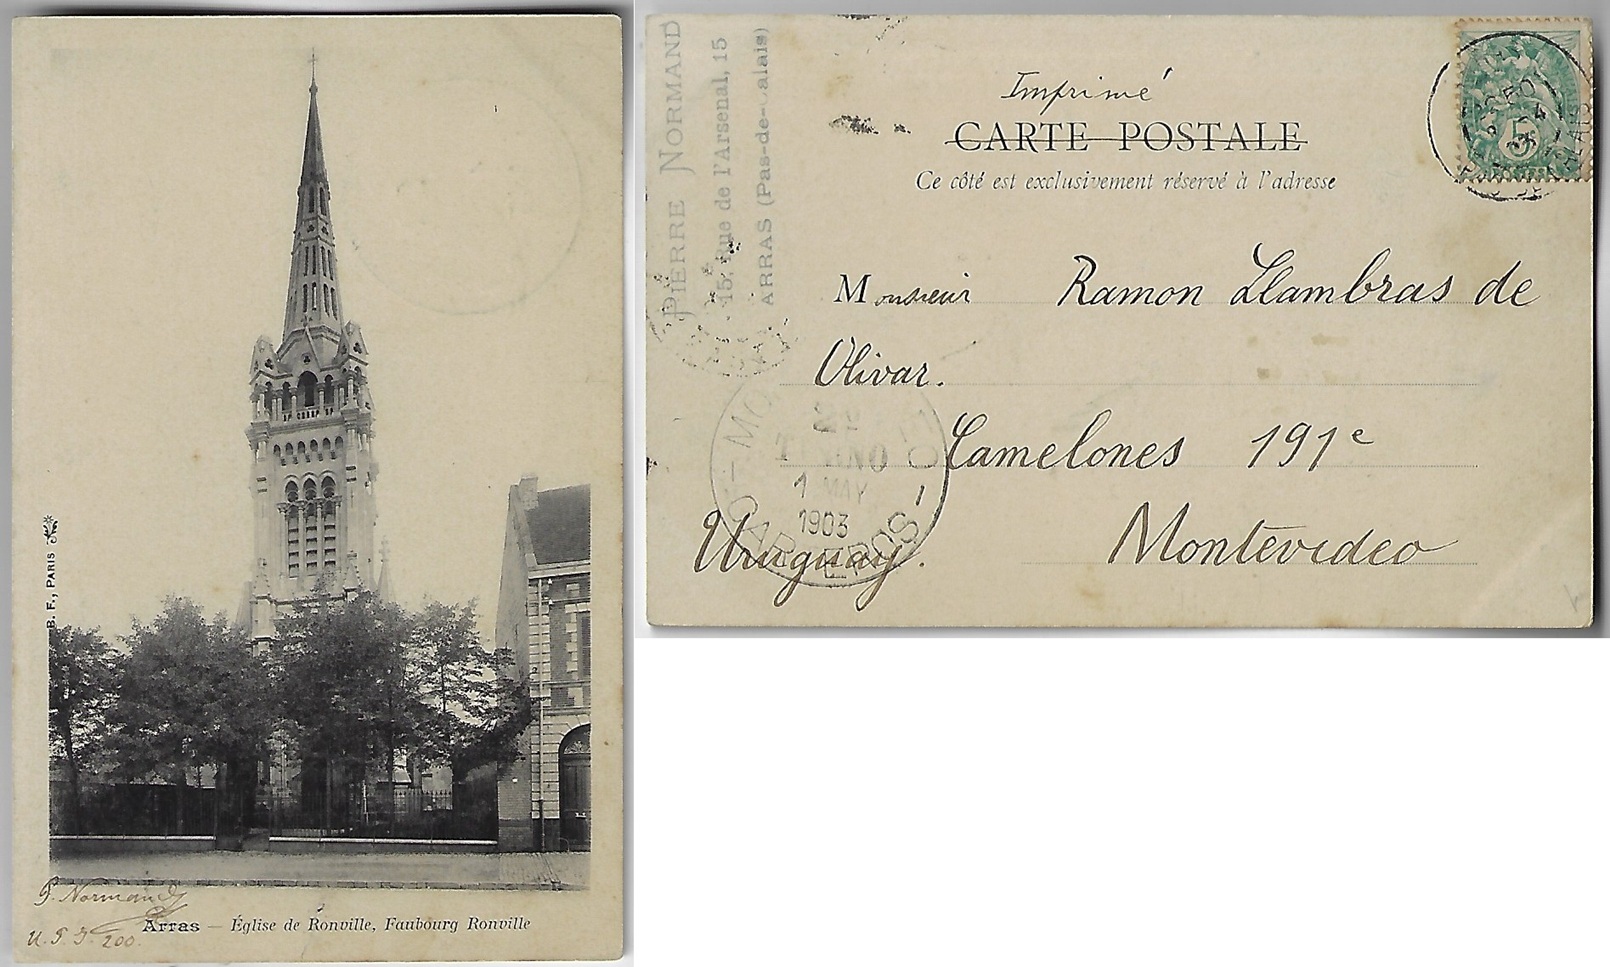 B. F., PARIS
P. Normand
U. P. J. 200.
Arras — Église de Ronville, Faubourg Ronville
PIERRE NORMAND
15, Rue de l'Arsenal, 15
ARRAS (Pas-de-Calais)
Imprimé
CARTE POSTALE
Ce côté est exclusivement réservé à l'adresse
5
Monsieur Ramon Llambras de
Olivar.
Camelones 191e
Uruguay. Montevideo
2º
TURNO
1 MAY
1903
CARTEROS